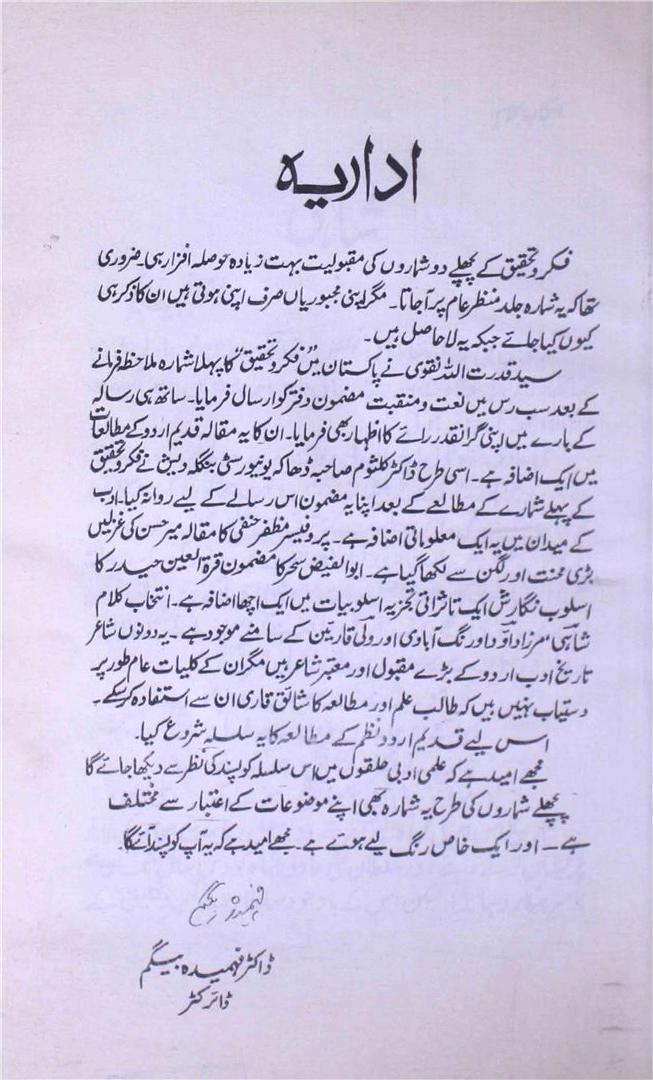 اداریہ
فکر و تحقیق کے پچھلے دو شماروں کی مقبولیت بہت زیادہ حوصلہ افزا رہی۔ ضروری
تھا کہ یہ شمارہ جلد منظر عام پر آجاتا۔ مگر اپنی مجبوریاں صرف اپنی ہوتی ہیں ان کا ذکر ہی
کیوں کیا جائے جبکہ یہ لا حاصل ہیں۔
سید قدرت اللہ نقوی نے پاکستان میں "فکر و تحقیق" کا پہلا شمارہ ملاحظہ فرمانے
کے بعد سب رس میں نعت و منقبت مضمون دفتر کو ارسال فرمایا۔ ساتھ ہی رسالہ
کے بارے میں اپنی گرانقدر رائے کا اظہار بھی فرمایا۔ ان کا یہ مقالہ قدیم اردو کے مطالعات
میں ایک اضافہ ہے۔ اسی طرح ڈاکٹر کلثوم صاحبہ ڈھاکہ یونیورسٹی بنگلہ دیش نے فکر و تحقیق
کے پہلے شمارے کے مطالعے کے بعد اپنا یہ مضمون اس رسالے کے لیے روانہ کیا۔ ادب
کے میدان میں یہ ایک معلوماتی اضافہ ہے۔ پروفیسر مظفر حنفی کا مقالہ میر حسن کی غزلیں
بڑی محنت اور لگن سے لکھا گیا ہے۔ ابوالفیض سحر کا مضمون قرۃ العین حیدر کا
اسلوب نگارش ایک تاثراتی تجزیہ اسلوبیات میں ایک اچھا اضافہ ہے۔ انتخاب کلام
شاہی مرزا داؤد اورنگ آبادی اور ولی قارئین کے سامنے موجود ہے۔ یہ دونوں شاعر
تاریخ ادب اردو کے بڑے مقبول اور معتبر شاعر ہیں مگر ان کے کلیات عام طور پر
دستیاب نہیں ہیں کہ طالب علم اور مطالعہ کا شائق قاری ان سے استفادہ کر سکے۔
اس لیے قدیم اردو نظم کے مطالعہ کا یہ سلسلہ شروع کیا۔
مجھے امید ہے کہ علمی ادبی حلقوں میں اس سلسلہ کو پسند کی نظر سے دیکھا جائے گا
پچھلے شماروں کی طرح یہ شمارہ بھی اپنے موضوعات کے اعتبار سے مختلف
ہے۔ اور ایک خاص رنگ لیے ہوئے ہے۔ مجھے امید ہے کہ یہ آپ کو پسند آئے گا۔
فہمیدہ بیگم
ڈاکٹر فہمیدہ بیگم
ڈائرکٹر